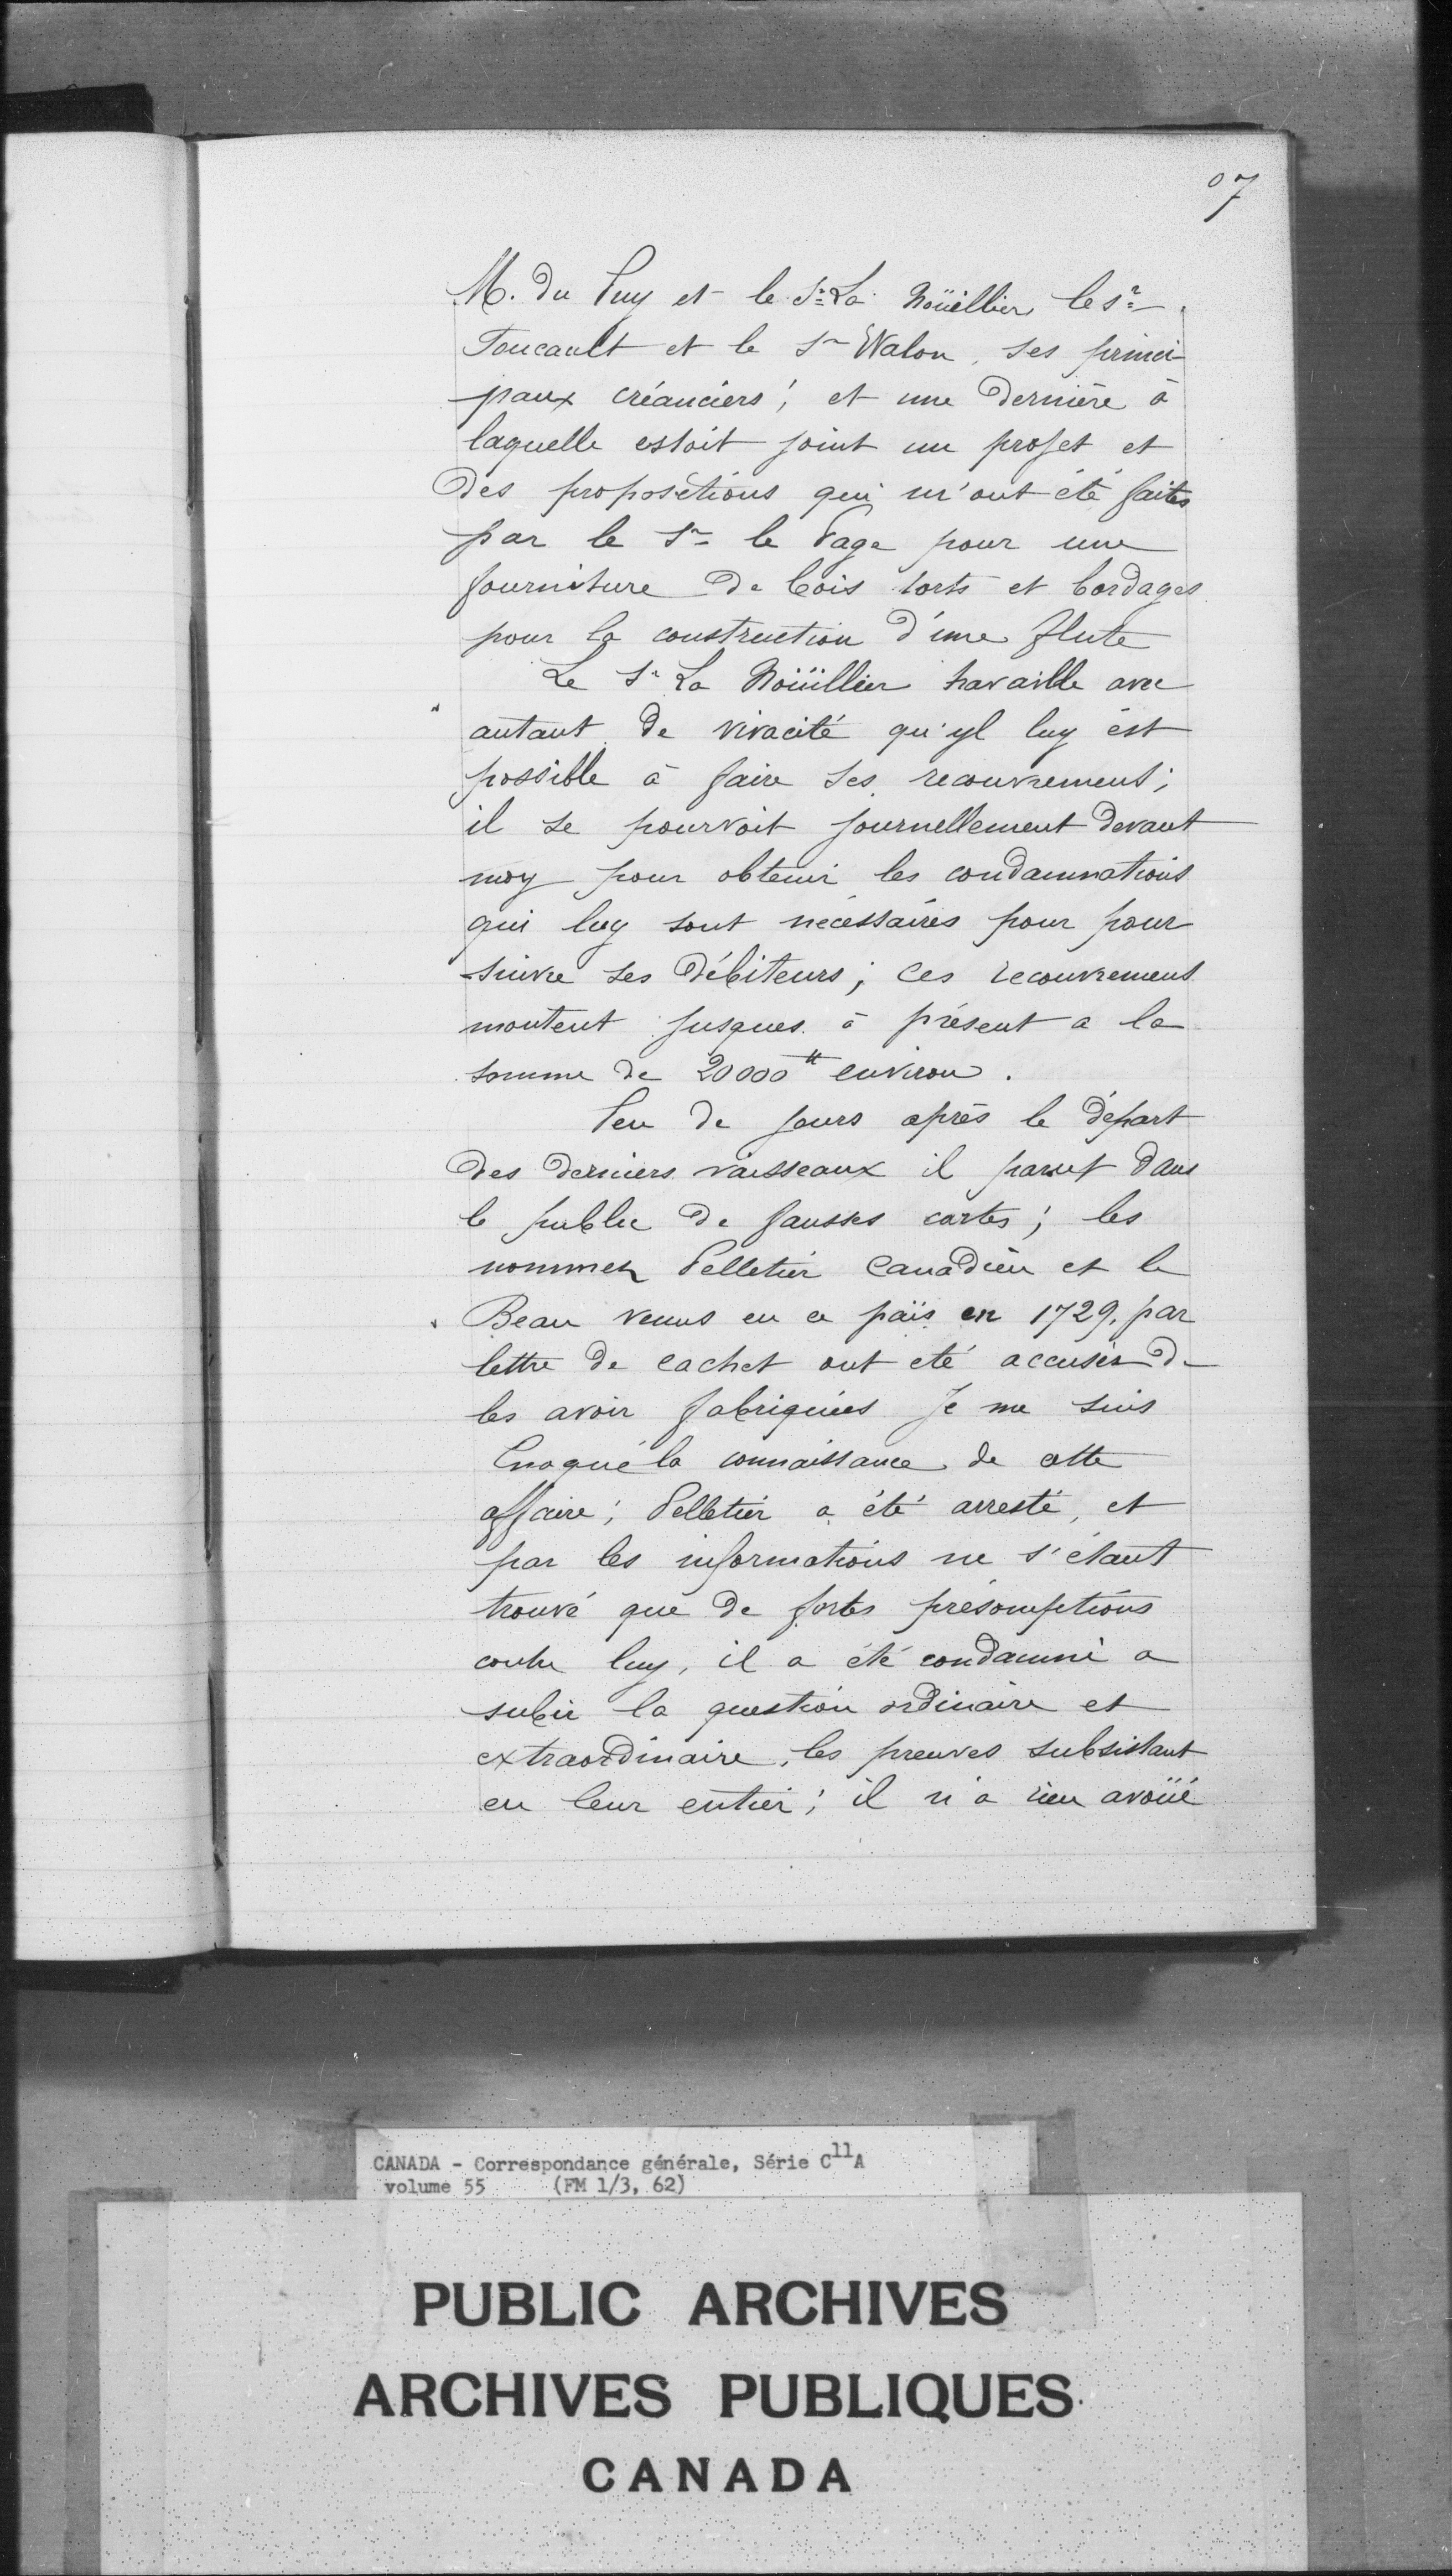 07
M. du Puy et le Sr. La Noüillier, le Sr.
Foucault et le Sr Walon, ses princi
paux créanciers; et une dernière à
laquelle estoit joint un projet et
des propositions qui m'ont été faites
par le Sr le Page pour une
fourniture de bois torts et bordages
pour la construction d'une flute
Le Sr La Noüillier travaille avec
autant de vivacité qu'yl luy est
possible à faire ses recouvremens;
il se pourvoit journellement devant
moy pour obtenir les condamnations
qui luy sont nécessaires pour pour
suivre ses débiteurs; ces recouvremens
montent jusques à présent a la
somme de 20000 ₶ environ.
Peu de jours après le départ
des derniers vaisseaux il parut dans
le public de fausses cartes; les
nommez Pelletier Canadien et le
Beau venus en ce païs en 1729, par
lettre de cachet ont eté accusés de
les avoir fabriquées Je me suis
la connaissance de cette
affaire; Pelletier a été arresté, et
par les informations ne s'étant
trouvé que de fortes présomptions
contre luy, il a été condamné a
subir la question ordinaire et
extraordinaire, les preuves subsistant
en leur entier; il n'a rien avoüé
CANADA - Correspondance générale, Série C11A
volume 55 (FM 1/3, 62)
PUBLIC ARCHIVES
ARCHIVES PUBLIQUES
CANADA